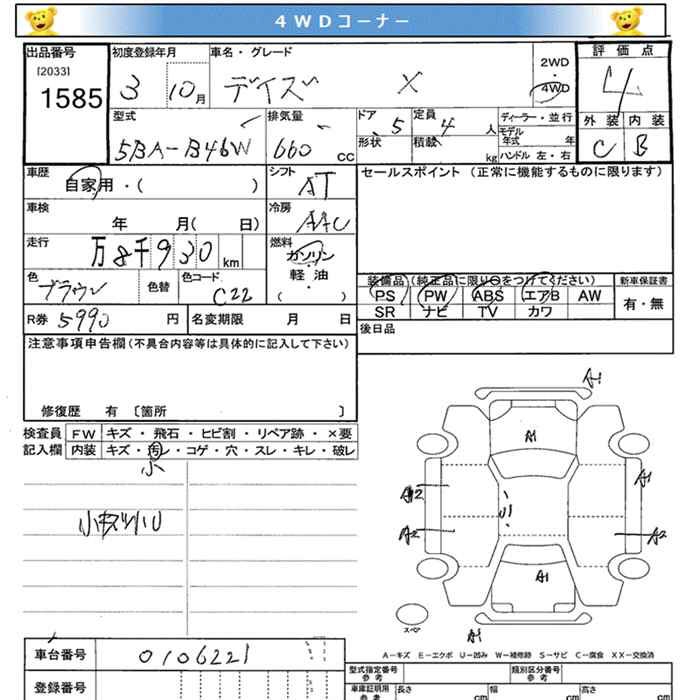 4WDコーナー
出品番号
[2033]
1585
初度登録年月
3 10月
車名・グレード
デイズ X
2WD
・
4WD
評価点
4
型式
5BA-B46W
排気量
660 cc
ドア 5
定員 4 人
形状
積載 kg
ディーラー・並行
モデル年式 年
ハンドル 左・右
外装 内装
C B
車歴
自家用・( )
シフト
AT
セールスポイント (正常に機能するものに限ります)
車検
年 月( 日)
冷房
AAC
走行
万8千930 km
燃料
ガソリン
軽・油
( ・ )
色
ブラウン
色替
色コード
C22
装備品(純正品に限り○をつけてください)
PS PW ABS エアB AW
SR ナビ TV カワ
新車保証書
有・無
R券 5990 円
名変期限 月 日
後日品
注意事項申告欄(不具合内容等は具体的に記入して下さい)
修復歴 有 〔箇所 〕
検査員
記入欄
FW キズ・飛石・ヒビ割・リペア跡・×要
内装 キズ・汚レ・コゲ・穴・スレ・キレ・破レ
小
A1
A1
A2
A1
A2
A2
A1
A1
スペア
A-キズ E-エクボ U-凹み W-補修跡 S-サビ C-腐食 XX-交換済
車台番号
0106221
登録番号
型式指定番号
参考
類別区分番号
参考
車庫証明用
参考
長さ cm
幅 cm
高さ cm